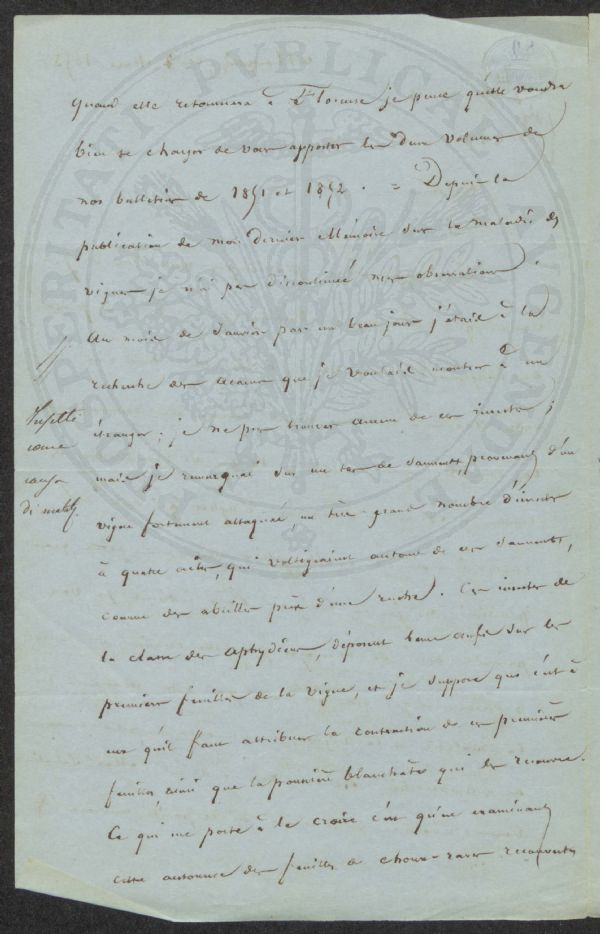 PROSPERITATI PUBLICAE AUGENDAE
quand elle retournera à Florence je pense qu'elle voudra
bien se charger de vous apporter les deux volumes de
nos bulletins de 1851 et 1852. = Depuis la
publication de mon dernier Mémoire sur la maladie des
vignes je n'ai pas discontinué mes observations.
Au mois de Janvier par un beau jour j'étais à la
recherche des acarus que je voulais montrer à un
étranger; je ne pus trouver aucun de ces insectes;
mais je remarquai sur un tas de sarments, provenant d'une
vigne fortement attaquée, un très grand nombre d'insectes
à quatre ailes, qui voltigeaient autour de ces sarments,
comme des abeilles près d'une ruche. Ces insectes de
la classe des aphydiens, déposent leurs œufs sur les
premières feuilles de la vigne, et je suppose que c'est à
eux qu'il faut attribuer la contraction de ces premières
feuilles, ainsi que la poussière blanchâtre qui les recouvre.
Ce qui me porte à le croire c'est qu'en examinant
cette automne des feuilles de choux-raves recouvertes
Insetti
come
causa
di